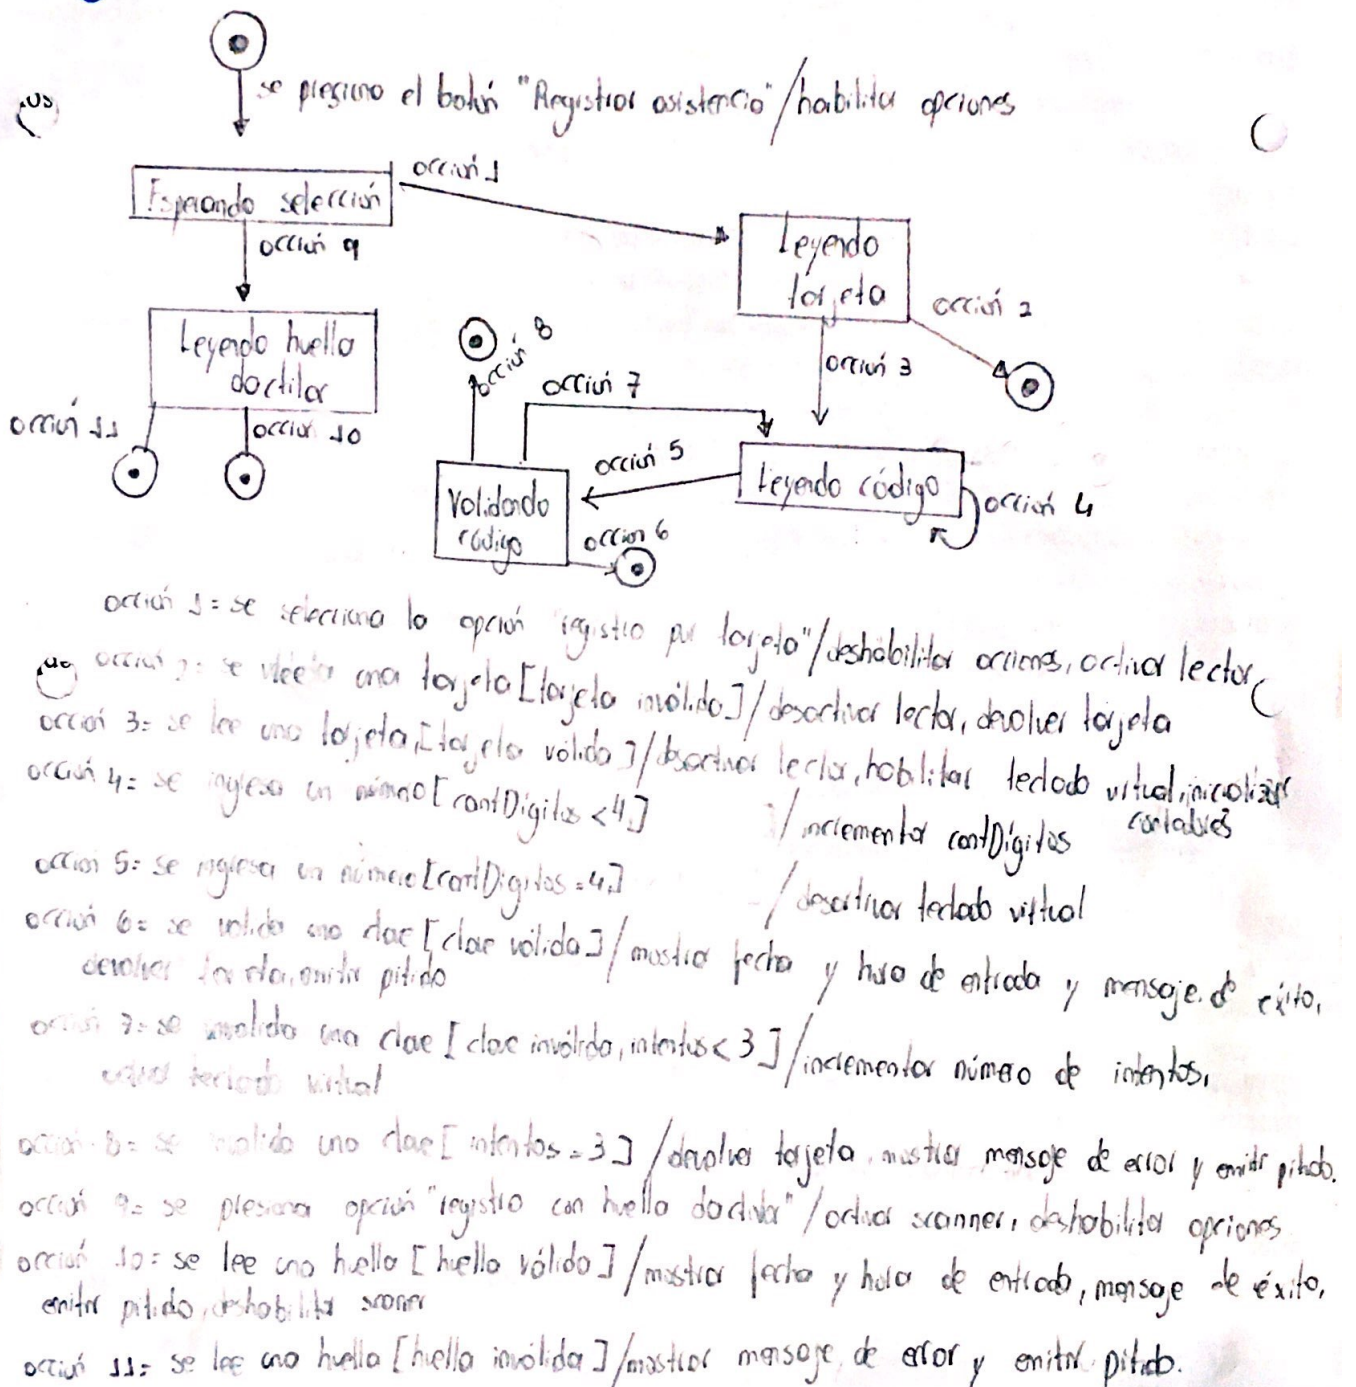 se presiona el botón "Registrar asistencia"/habilitar opciones
acción 1
Esperando selección
acción 9
Leyendo tarjeta
acción 2
acción 3
Leyendo huella dactilar
acción 11
acción 10
acción 8
acción 7
acción 5
Leyendo código
acción 4
Validando código
acción 6
acción 1= se selecciona la opción "registro por tarjeta"/deshabilitar acciones, activar lector
acción 2= se una tarjeta [tarjeta inválida]/desactivar lector, devolver tarjeta
acción 3= se lee una tarjeta, [tarjeta válida]/desactivar lector, habilitar teclado virtual, inicializar
contadores
acción 4= se ingresa un número [contDígitos <4] / incrementar contDígitos
acción 5= se ingresa un número [contDigitos =4] / desactivar teclado virtual
acción 6= se valida una clave [clave válida]/mostrar fecha y hora de entrada y mensaje de éxito,
devolver tarjeta, emitir pitido
acción 7= se invalida una clave [clave inválida, intentos<3]/incrementar número de intentos,
teclado virtual
acción 8= se invalida una clave [intentos =3]/devolver tarjeta, mostrar mensaje de error y emitir pitido.
acción 9= se presiona opción "registro con huella dactilar"/activar scanner, deshabilitar opciones
acción 10= se lee una huella [huella válida]/mostrar fecha y hora de entrada, mensaje de éxito,
emitir pitido, deshabilitar scanner
acción 11= se lee una huella [huella inválida]/mostrar mensaje de error y emitir pitido.